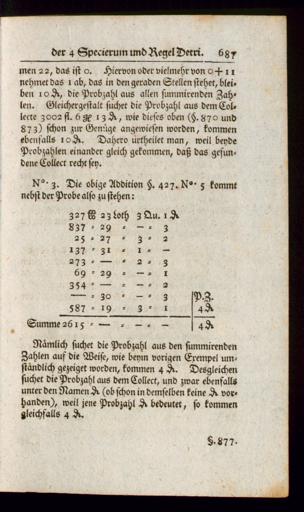 der 4 Specierum und Regel Detri. 687
men 22, das ist 0. Hiervon oder vielmehr von 0 + 11
nehmet das 1 ab, das in den geraden Stellen stehet, blei-
ben 10 ₰, die Probzahl aus allen summirenden Zah-
len. Gleichergestalt suchet die Probzahl aus dem Col-
lecte 3002 fl. 6 ßl 13 ₰, wie dieses oben (§. 870 und
873) schon zur Genüge angewiesen worden, kommen
ebenfalls 10 ₰. Dahero urtheilet man, weil beyde
Probzahlen einander gleich gekommen, daß das gefun-
dene Collect recht sey.
No. 3. Die obige Addition §. 427. No. 5 kommt
nebst der Probe also zu stehen:
327 ℔ 23 Loth 3 Qu. 1 ₰
837 = 29 = — = 3
25 = 27 = 3 = 2
137 = 31 = 1 = —
273 = — = 2 = 3
69 = 29 = — = 1
354 = — = — = 2
— = 30 = — = 3 P. Z.
587 = 19 = 3 = 1 4 ₰
Summe 2615 = — = — = — 4 ₰
Nämlich suchet die Probzahl aus den summirenden
Zahlen auf die Weise, wie beym vorigen Exempel um-
ständlich gezeiget worden, kommen 4 ₰. Desgleichen
suchet die Probzahl aus dem Collect, und zwar ebenfalls
unter den Namen ₰ (ob schon in demselben keine ₰ vor-
handen), weil jene Probzahl ₰ bedeutet, so kommen
gleichfalls 4 ₰.
§. 877.